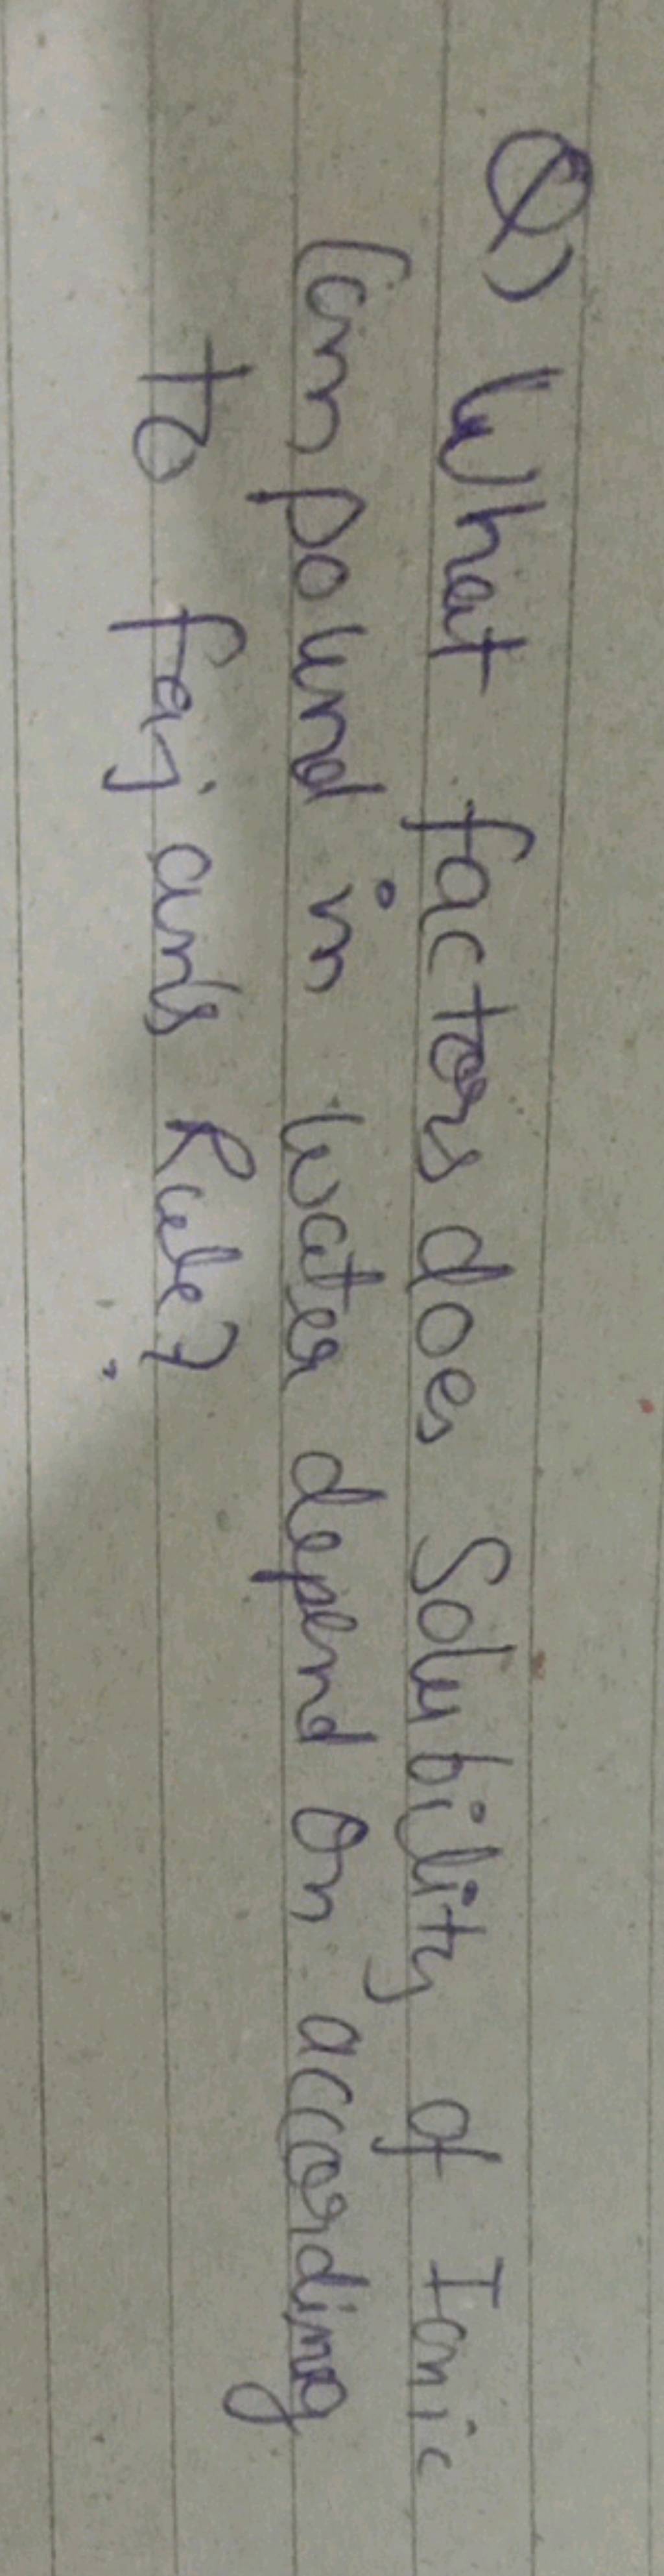 Q) What factors does Solubility of Ionic
Compound in water depend on according
to fajan's Rule?